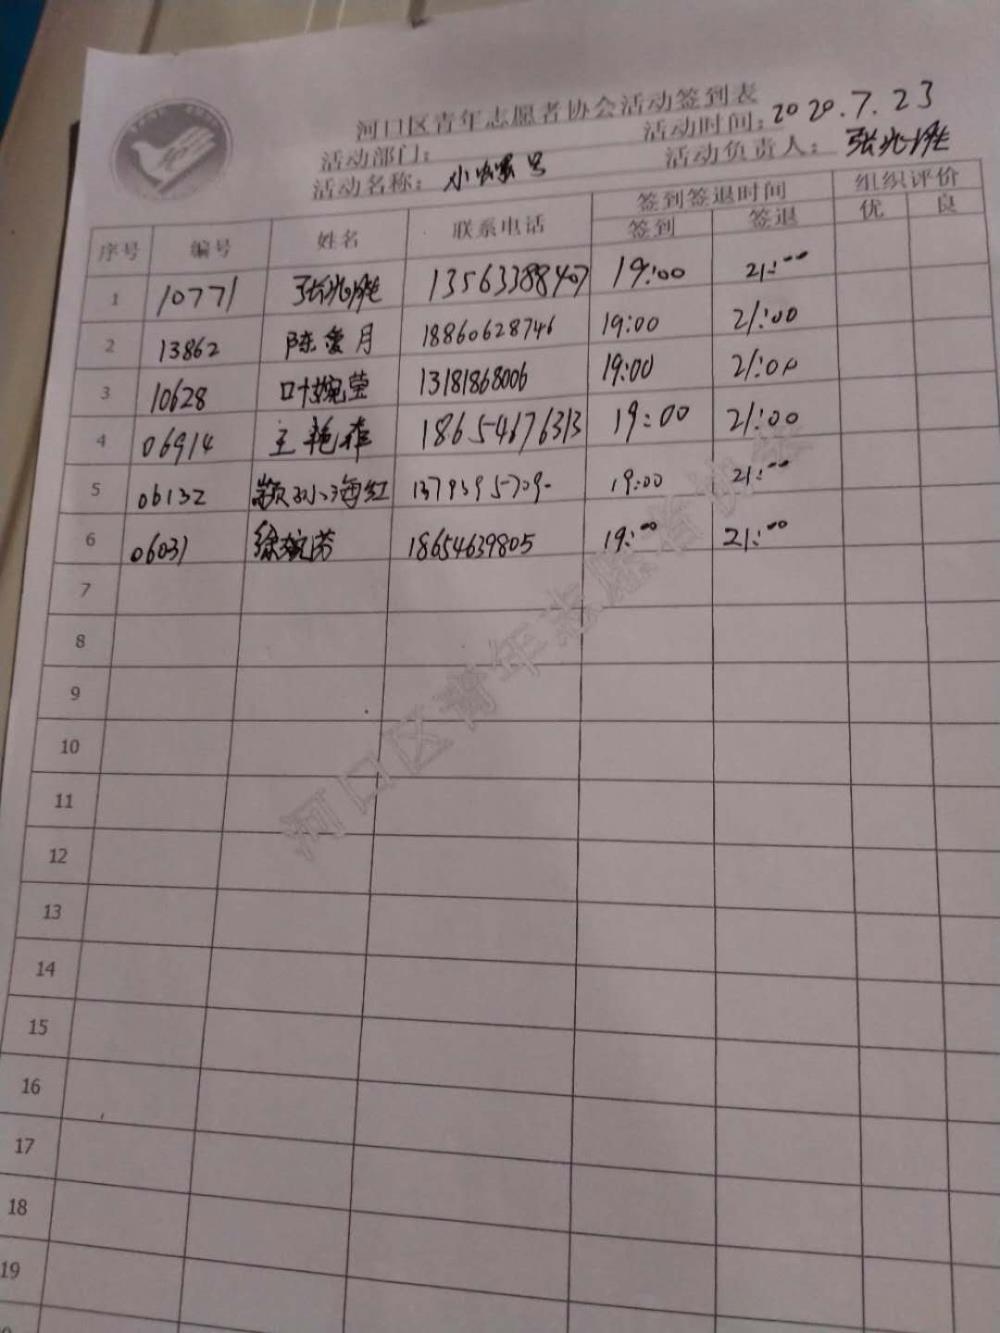 河口区青年志愿者协会活动签到表
活动部门： 活动时间：2020.7.23
活动名称：小 号 活动负责人：张兆胜
序号 编号 姓名 联系电话 签到签退时间 组织评价
签到 签退 优 良
1 10771 张兆胜 13563388407 19:00 21:00
2 13862 陈爱月 18860628746 19:00 21:00
3 10628 叶婉莹 13181868006 19:00 21:00
4 06914 王艳萍 18654676313 19:00 21:00
5 06132 海红 19:00 21:00
6 06031 徐 芳 18654639805 19:00 21:00
7
8
9
10
11
12
13
14
15
16
17
18
19
河口区青年志愿者协会